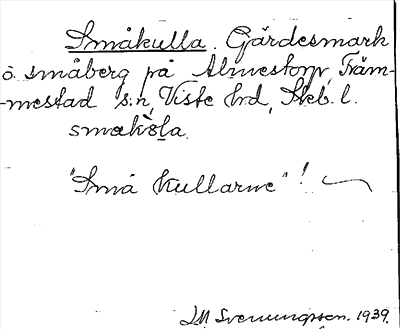 Småkulla. Gärdesmark
o. småberg på Almestorp, Främ-
-mestad s:n, Viste hd, Skb. l.
smækə̀la.
"Små kullarne"!
IM Svenungsson. 1939.